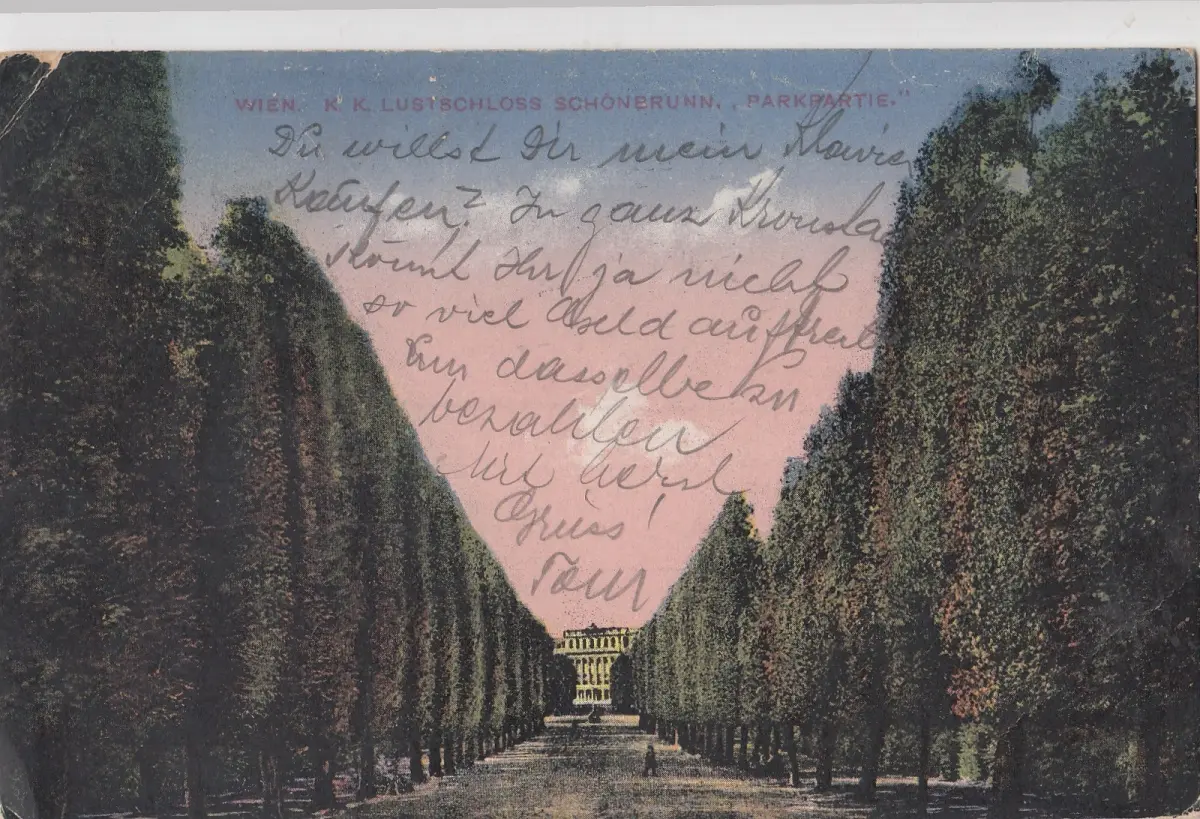 WIEN. K. K. LUSTSCHLOSS SCHÖNBRUNN. „PARKPARTIE."
Du willst Dir mein Klavier
Kaufen? In ganz
könnt Ihr ja nicht
so viel Geld auftreib
Um dasselbe zu
bezahlen
Mit herzl
Gruss!